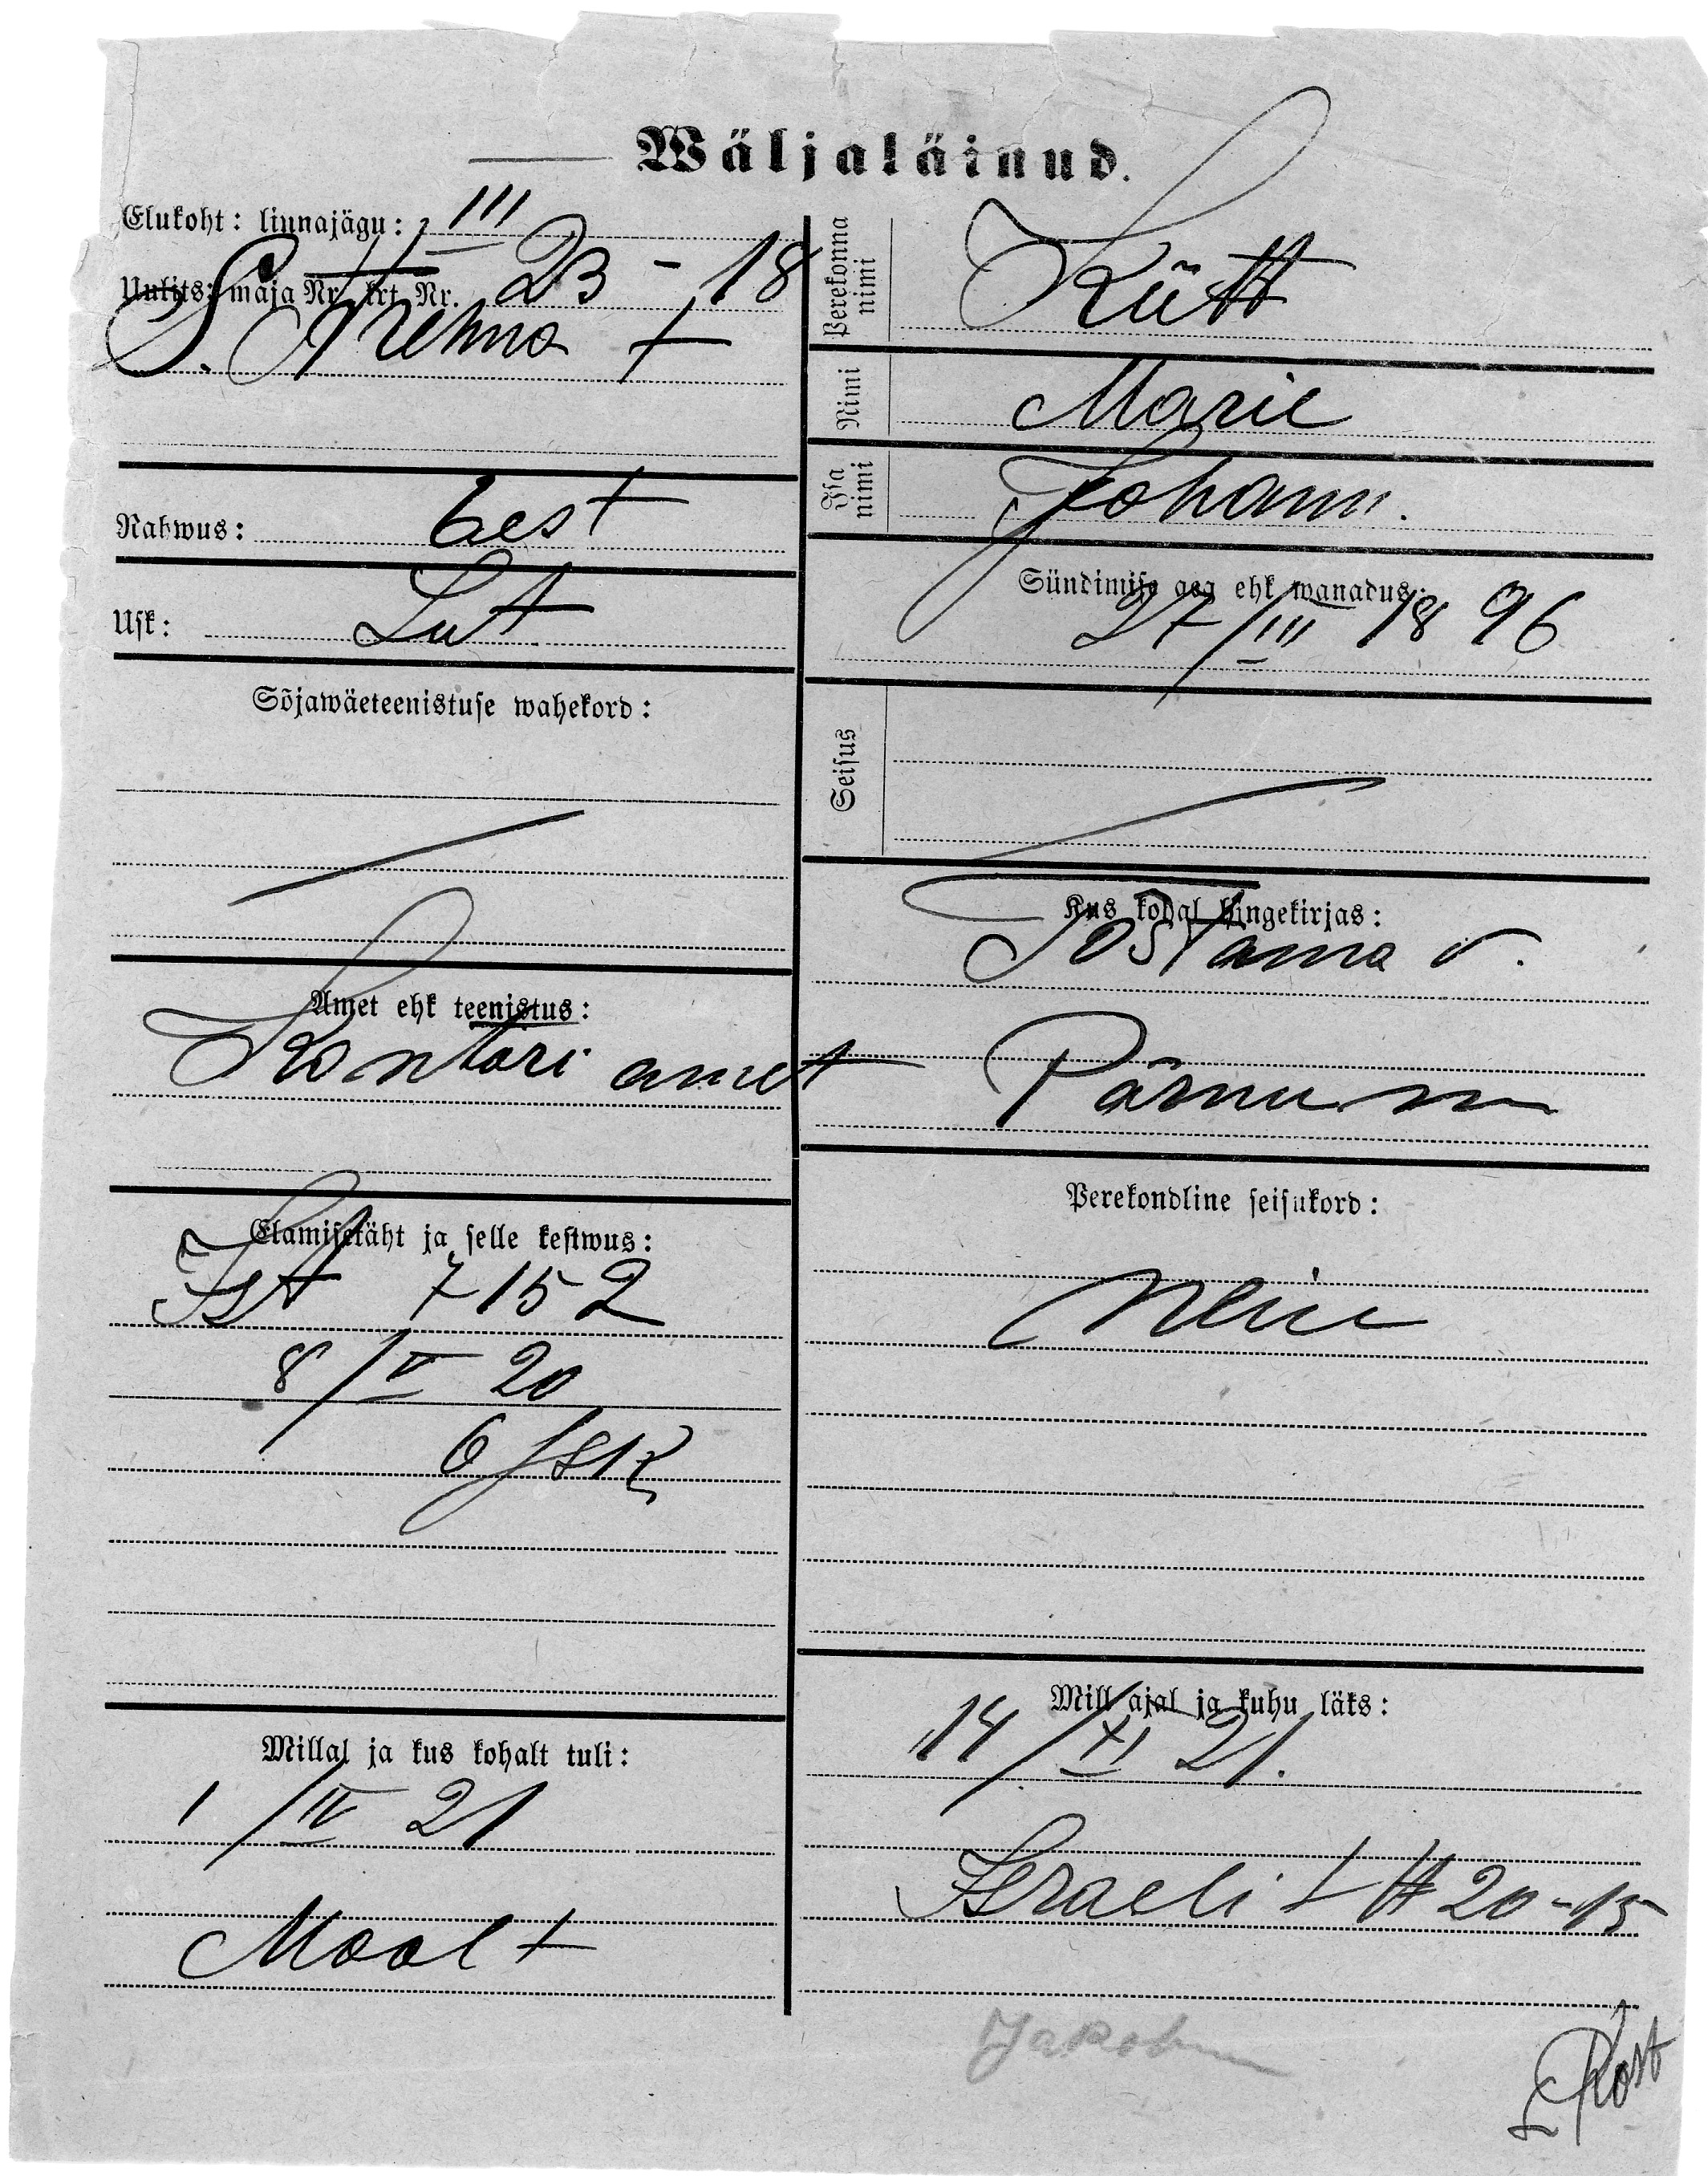 Wäljaläinud.
Elukoht: linnajägu: III
Uulits: maja Nr. krt. Nr. 23 - 18
S.
Nahwus: Eest
Usk: Lut
Sõjawäeteenistuse wahekord:
Amet ehk teenistus:
Kontori amet
Elamisetäht ja selle kestwus:
Ist 7152
8/V 20
Millal ja kus kohalt tuli:
1/IV 21
Maalt
Perekonna nimi Kütt
Nimi Marie
Isa nimi Johann.
Sündimise aeg ehk wanadus:
27/III 1896
Seisus
Kus kohal hingekirjas:
Tostama v.
Pärnu m
Perekondline seisukord:
Neiu
Mill ajal ja kuhu läks:
14/XI 21.
Israeli t 20-15